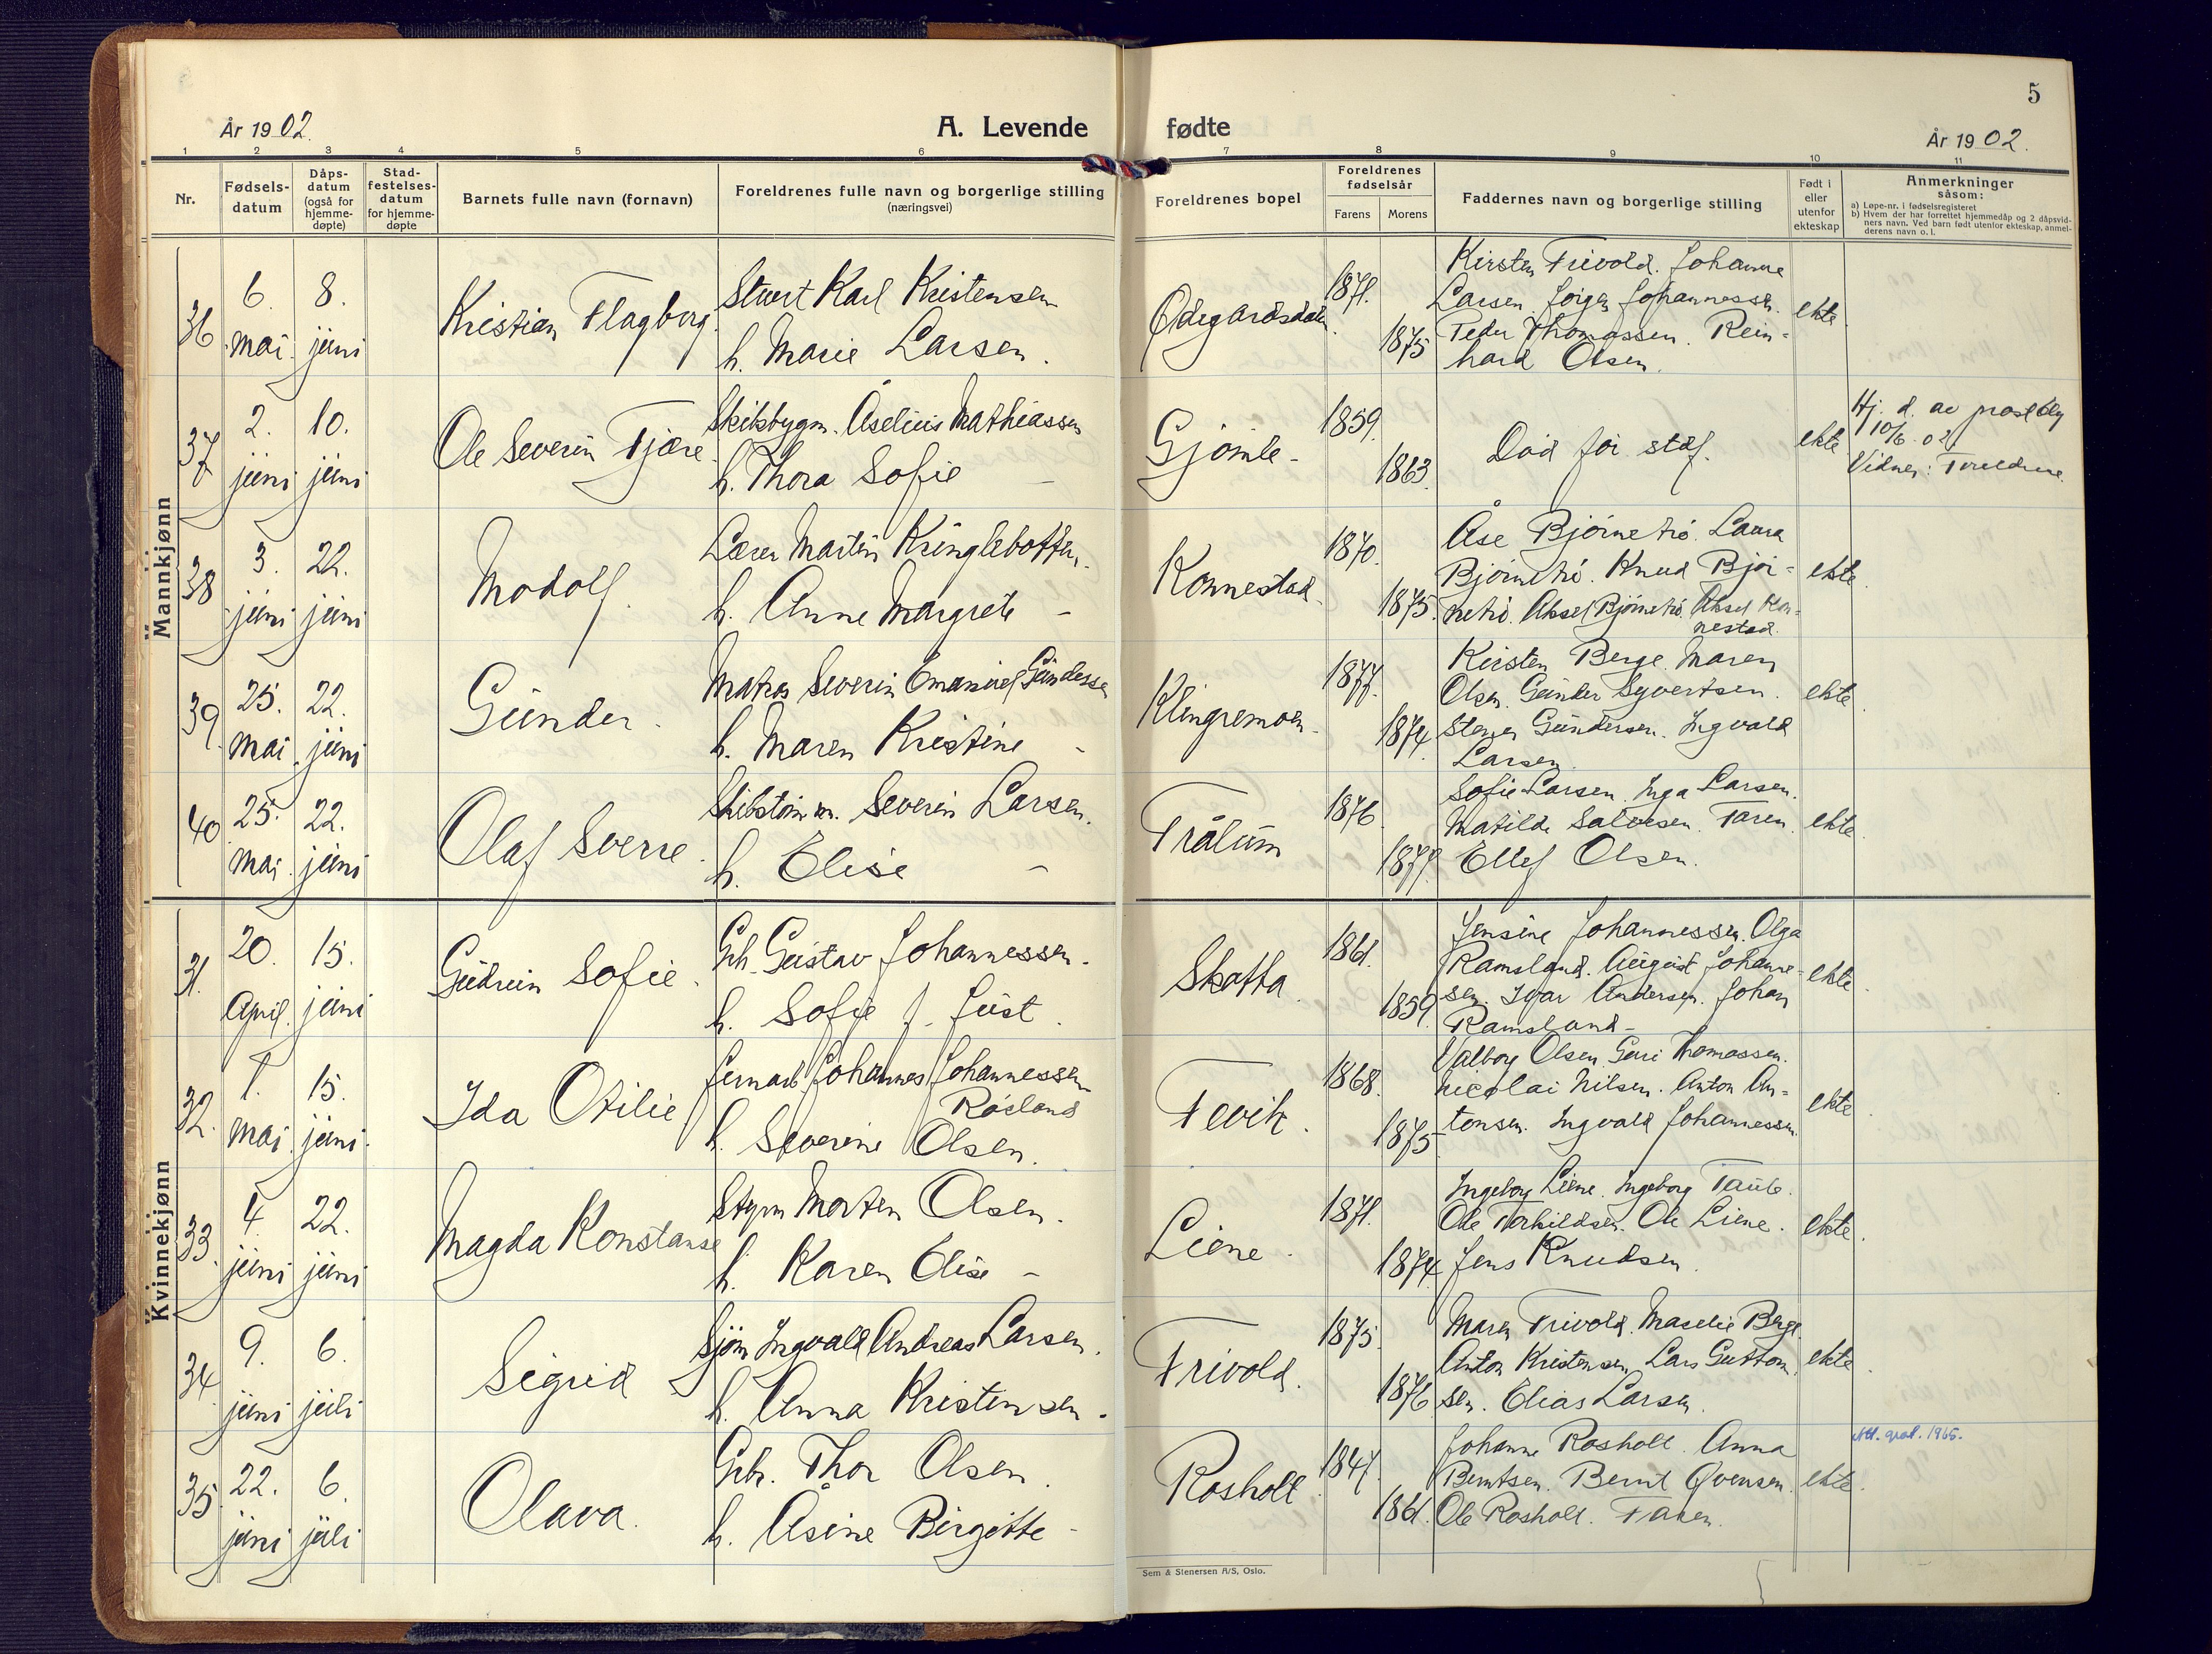 5
År 1902.
A. Levende fødte
År 1902.
1 2 3 4 5 6 7 8 9 10 11
Nr.
Fødsels-
datum
Dåps-
datum
(også for
hjemme-
døpte)
Stad-
festelses-
datum
for hjemme-
døpte
Barnets fulle navn (fornavn)
Foreldrenes fulle navn og borgerlige stilling
(næringsvei)
Foreldrenes bopel
Foreldrenes
fødselsår
Farens Morens
Faddernes navn og borgerlige stilling
Født i
eller
utenfor
ekteskap
Anmerkninger
såsom:
a) Løpe-nr. i fødselsregisteret
b) Hvem der har forrettet hjemmedåp og 2 dåpsvid-
ners navn. Ved barn født utenfor ekteskap, anmel-
derens navn o. l.
Mannkjønn
36
6.
mai
8.
juni
Kristian Flagborg
Stuert Karl Kristensen
h. Marie Larsen.
Ødegardsdalen
1871.
1875
Kirsten Frivold. Johanne
Larsen. Jörgen Johannessen.
Peder Thomassen. Rein-
hard Olsen.
ekte
37
2.
juni
10.
juni
Ole Severin Fjære
Skibsbygm. Aselius Mathiassen
h. Thora Sofie -
Gjömle -
1859.
1863.
Död för stdf.
ekte
Hj. d. av
10/6. 02.
Vidner: Foreldrene
38
3.
juni
22.
juni
Modolf.
Lærer Martin Kringlebotten.
h. Anne Margrete -
Konnestad.
1870.
1875.
Åse Björnetrö. Laura
Björnetrö. Knud Björ-
netrö. Aksel Björnetrö. Aksel Kon-
nestad.
ekte.
39
25.
mai
22.
juni
Gunder.
Matros Severin Emanuel Gundersen
h. Maren Kristine -
Klingremoen.
1877.
1874
Kirsten Berge. Maren
Olsen. Gunder Syvertsen.
Stener Gundersen. Ingvald
Larsen.
ekte.
40
25.
mai.
22.
juni
Olaf Sverre.
Skibstöm.m. Severin Larsen.
h. Elise -
Trålum
1876
1877
Sofie Larsen. Inga Larsen.
Matilde Salvesen. Faren.
Ellef Olsen.
ekte.
Kvinnekjønn
31.
20.
April.
15.
juni
Gudrun Sofie.
Grb. Gustav Johannessen.
h. Sofie f. Just.
Skatta.
1861.
1859.
Jensine Johannessen. Olga
Ramsland. August Johanne-
sen. Ivar Andersen. Johan
Ramsland-
ekte.
32.
1.
mai
15.
juni.
Ida Otilie
Jernarb. Johannes Johannessen
Rösland
h. Severine Olsen.
Fevik.
1868.
1875
Valborg Olsen Guri Thomassen.
Nicolai Nilsen. Anton An-
tonsen. Ingvald Johannessen.
ekte.
33.
4.
juni
22.
juni
Magda Konstanse
Styrm Morten Olsen.
h. Karen Elise -
Liene.
1871.
1874
Ingeborg Liene. Ingeborg Taule.
Ole Torkildsen. Ole Liene.
Jens Knudsen.
ekte.
34
9.
juni
6.
juli
Sigrid
Sjöm Ingvald Andreas Larsen.
h. Anna Kristensen.
Frivold.
1875.
1876
Maren Frivold. Maselie Berge
Anton Kristensen. Lars Guttorm-
sen. Elias Larsen.
ekte.
35
22.
juni
6.
juli
Olava.
Grb. Thor Olsen.
h. Åsine Birgitte -
Rosholt.
1847.
1861.
Johanne Rosholt. Anna
Berntsen. Bernt Evensen.
Ole Rosholt. Faren.
ekte.
Att. 1965.
Sem & Stenersen A/S, Oslo.